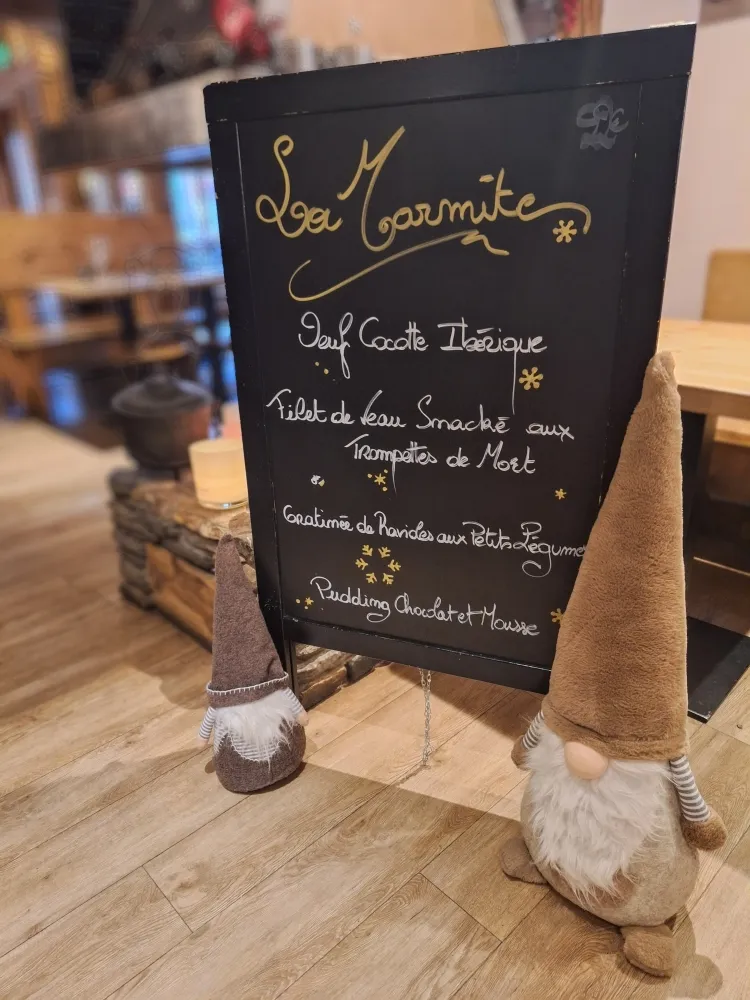 La Marmite
Oeuf Cocotte Ibérique
Filet de Veau Smacké aux
Trompettes de Mort
Gratinée de Ravioles aux Petits Légumes
Pudding Chocolat et Mousse